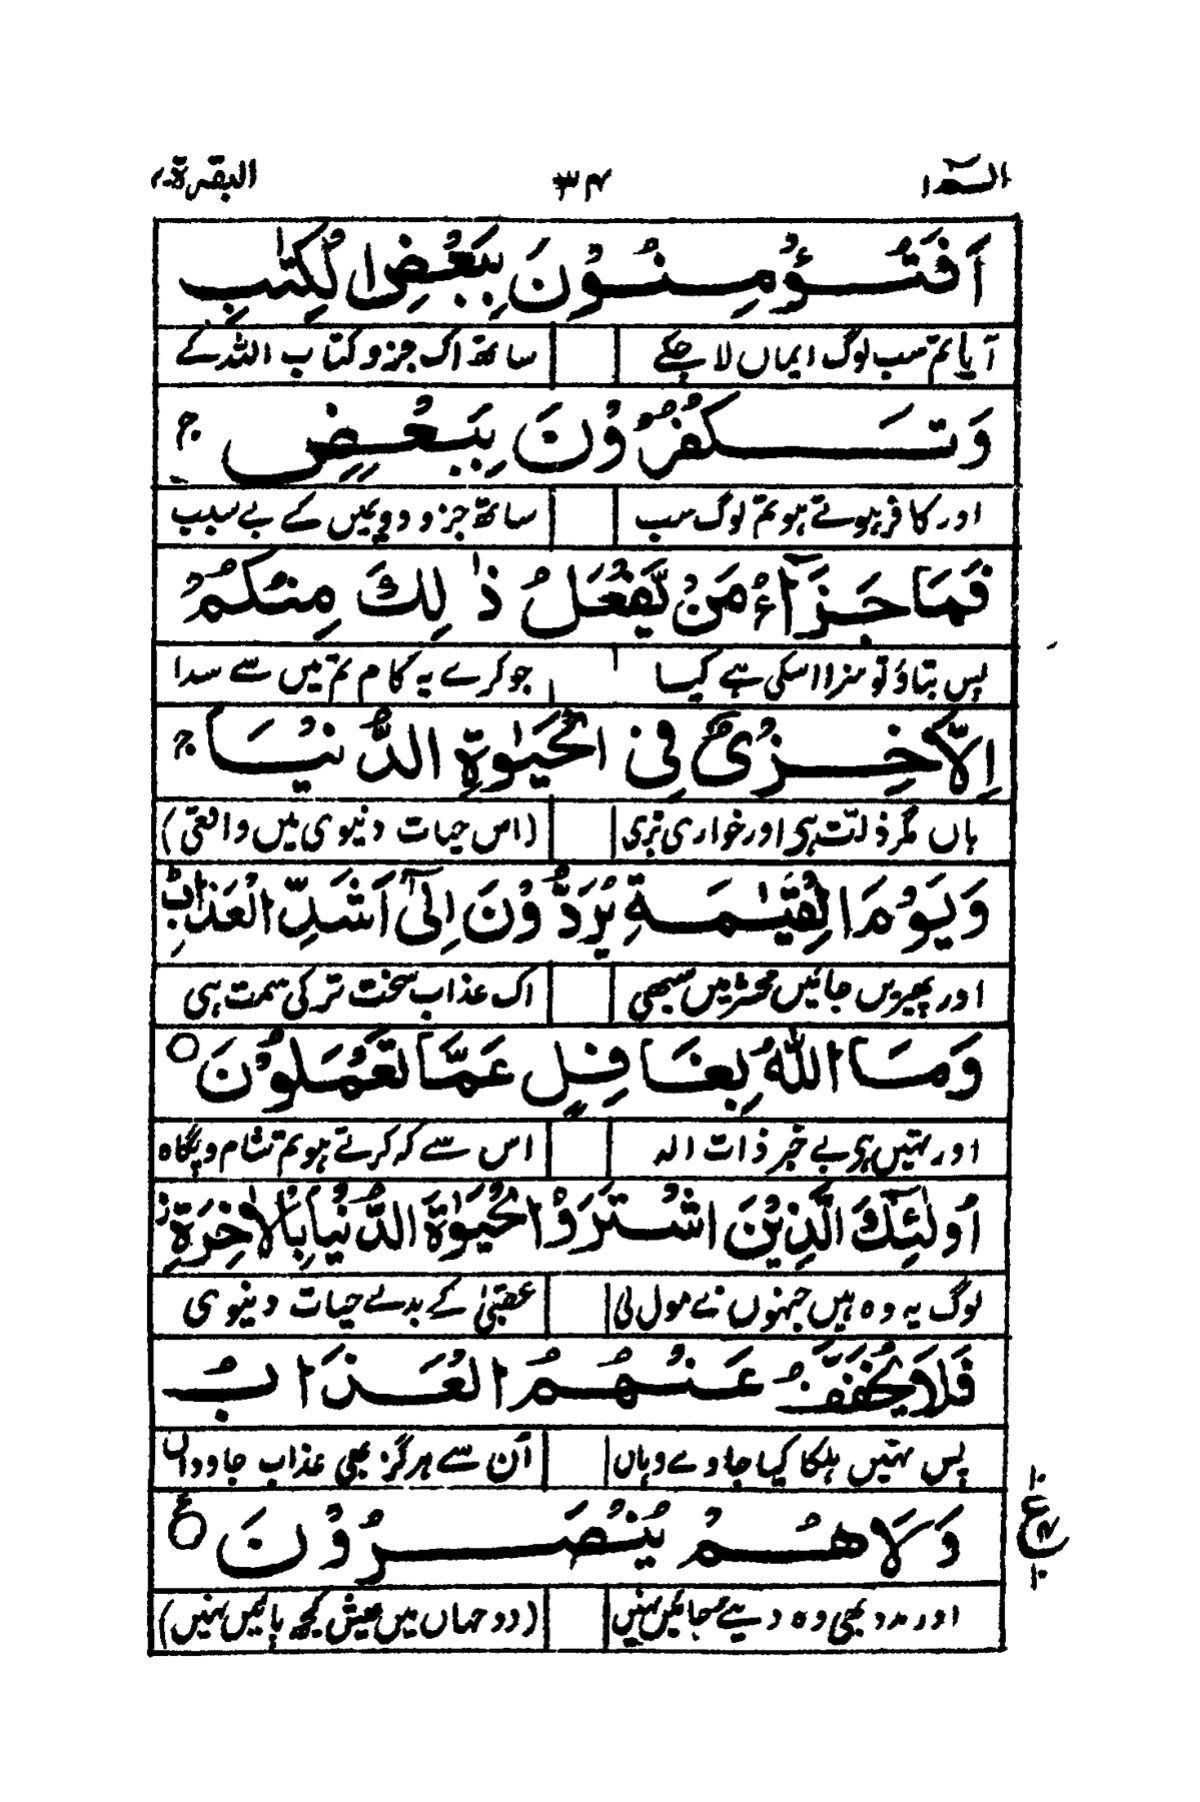 الٓـمٓ ١ ٣٤ البقرة ٢
اَفَتُؤْمِنُوْنَ بِبَعْضِ الْكِتٰبِ
آیا تم سب لوگ ایماں لا چکے ساتھ اک جزو کتاب اللہ کے
وَتَكْفُرُوْنَ بِبَعْضٍ ج
اور کافر ہوتے ہو تم لوگ سب ساتھ جزو دویمیں کے بے سبب
فَمَا جَزَآءُ مَنْ يَّفْعَلُ ذٰلِكَ مِنْكُمْ
پس بتاؤ تو سزا اسکی ہے کیا جو کرے یہ کام تم میں سے سدا
اِلَّا خِزْىٌ فِى الْحَيٰوةِ الدُّنْيَا ج
ہاں مگر ذلّت ہی اور خواری نری (اس حیات دنیوی میں واقعی)
وَيَوْمَ الْقِيٰمَةِ يُرَدُّوْنَ اِلٰٓى اَشَدِّ الْعَذَابِ ط
اور پھیریں جائیں محشر میں سبھی اک عذاب سخت تر کی سمت ہی
وَمَا اللّٰهُ بِغَافِلٍ عَمَّا تَعْمَلُوْنَ ○
اور نہیں ہی بے خبر ذات الہ اس سے کہ کرتے ہو تم شام و پگاہ
اُولٰٓئِكَ الَّذِيْنَ اشْتَرَوُا الْحَيٰوةَ الدُّنْيَا بِالْاٰخِرَةِ ز
لوگ یہ وہ ہیں جنہوں نے مول لی عقبیٰ کے بدلے حیات دنیوی
فَلَا يُخَفَّفُ عَنْهُمُ الْعَذَابُ
پس نہیں ہلکا کیا جاوے وہاں اُن سے ہرگز بھی عذاب جاوداں
وَلَا هُمْ يُنْصَرُوْنَ ○ ع
اور مدد بھی وہ دیے جائیں نہیں (دو جہاں میں عیش کچھ پائیں نہیں)
١٠ ع ١٠